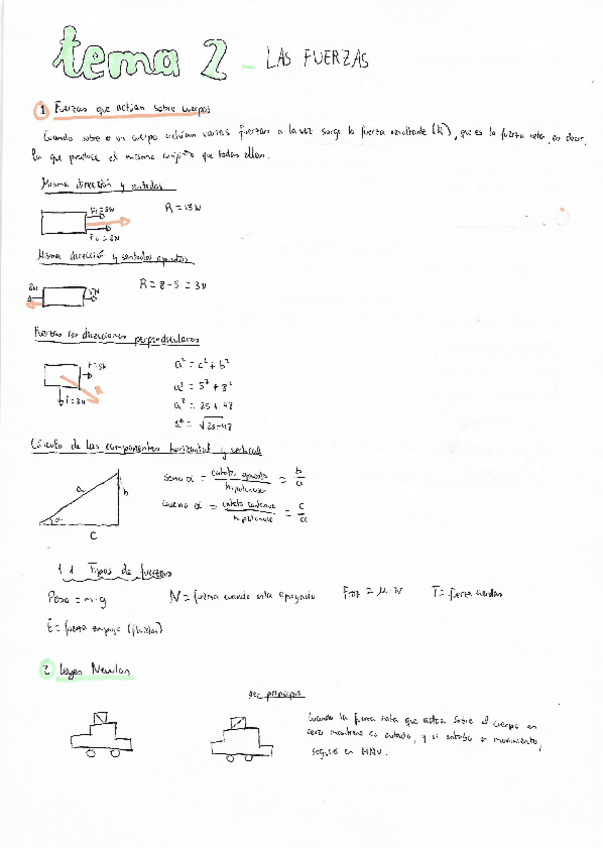 tema 2 - LAS FUERZAS
1 Fuerzas que actúan sobre cuerpos
Cuando sobre un cuerpo actúan varias fuerzas a la vez surge la fuerza resultante (R), que es la fuerza neta, es decir,
la que produce el mismo conjunto que todas ellas.
Misma dirección y sentidos
R = 13N
Misma dirección y sentidos opuestos
8N 5N R = 8 - 5 = 3N
Fuerzas con direcciones perpendiculares
a² = c² + b²
R a² = 5² + 8²
a² = 25 + 48
Cálculo de las componentes horizontal y vertical
a b seno α = cateto opuesto / hipotenusa = b / a
α coseno α = cateto contiguo / hipotenusa = c / a
C
1.1 Tipos de fuerzas
Peso = m·g N = fuerza cuando esta apoyado = μ·N T = fuerza cuerdas
E = fuerza empuje (fluidos)
2 Leyes Newton
principio
Cuando la fuerza neta que actúa sobre el cuerpo es
cero mantiene su estado, y si estaba en movimiento,
seguirá en MRU.